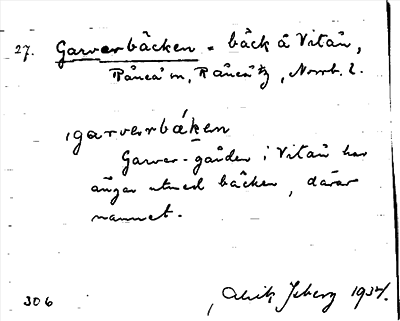 27. Garverbäcken = bäck å Vitån,
Råneå sn, Råneå tg, Norrb. l.
ˌgarverbáken
Garver-gården i Vitån har
ängar utmed bäcken, därav
namnet.
306 Alrik Isberg 1934.